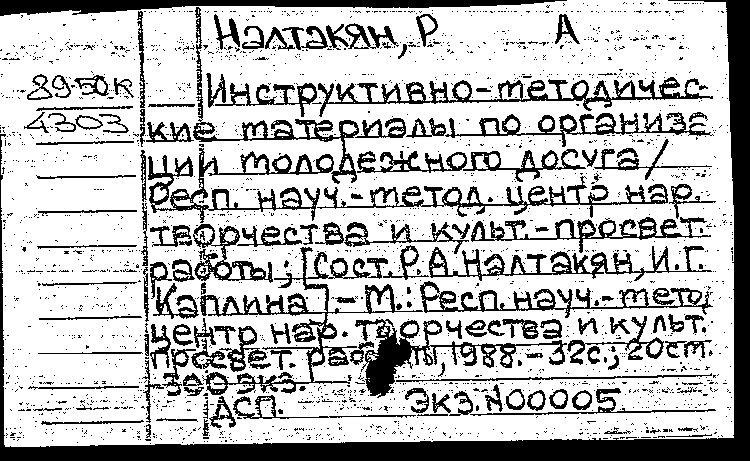 Налтакян, Р А
89-50к
4303
Инструктивно-методичес-
кие материалы по организа
ции молодежного досуга /
Респ. науч.-метод. центр нар.
творчества и культ.-просвет.
работы; [Сост. Р.А.Налтакян, И.Г.
Каплина].- М.: Респ. науч.-метод
центр нар. творчества и культ.
просвет. работы, 1988.- 32с.; 20см.
-300 экз.
ДСП. Экз. N00005